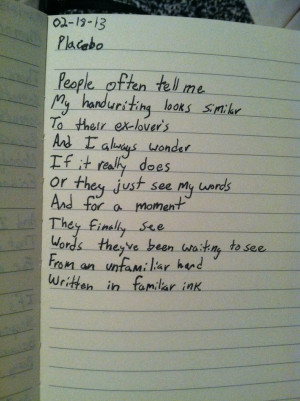 02-18-13
Placebo
People often tell me
My handwriting looks similar
To their ex-lover's
And I always wonder
If it really does
Or they just see my words
And for a moment
They finally see
Words they've been waiting to see
From an unfamiliar hand
Written in familiar ink